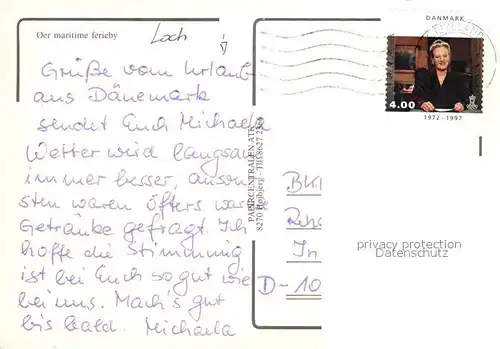 Øer maritime ferieby
Loch
Grüße vom Urlaub
aus Dänemark
sendet Euch Michaela
Wetter wird langsam
immer besser, anson
sten waren öfters warme
Getränke gefragt. Ich
hoffe die Stimmung
ist bei Euch so gut wie
bei uns. Mach's gut
bis bald. Michaela
PAPIRCENTRALEN ATK
8270 Højbjerg - Tlf. 8627 23
DANMARK
4.00
1972 - 1997
BK
Reha
In
D-10
privacy protection
Datenschutz